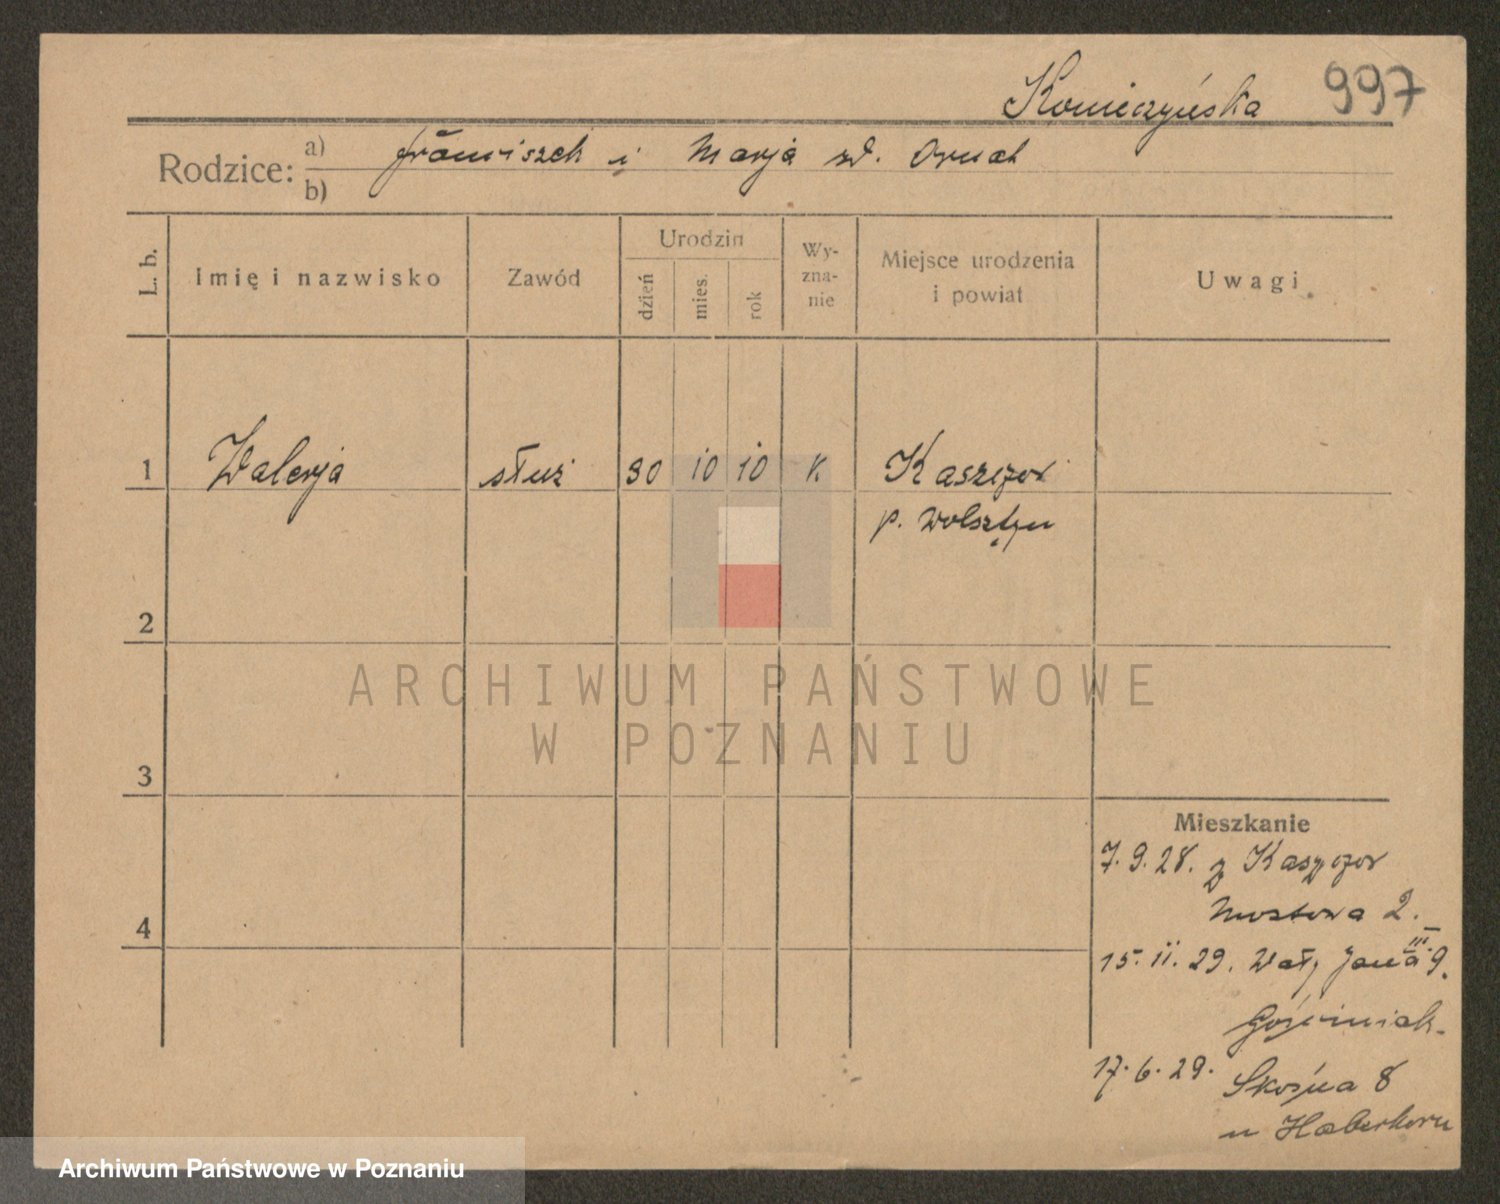 Konieczyńska 997
Rodzice: a) Franciszek i Marja zd.
b)
L. b. Imię i nazwisko Zawód Urodzin dzień mies. rok Wy-zna-nie Miejsce urodzenia i powiat Uwagi
1 Walerja służ 30 10 10 K Kaszczor
p. Wolsztyn
2
ARCHIWUM PAŃSTWOWE
W POZNANIU
3
Mieszkanie
7.9.28. z Kaszczor
4 Mostowa 2.
15.11.29. Wały Jana III 9.
Gościniak.
17.6.29. Skośna 8
u Haberkorn
Archiwum Państwowe w Poznaniu